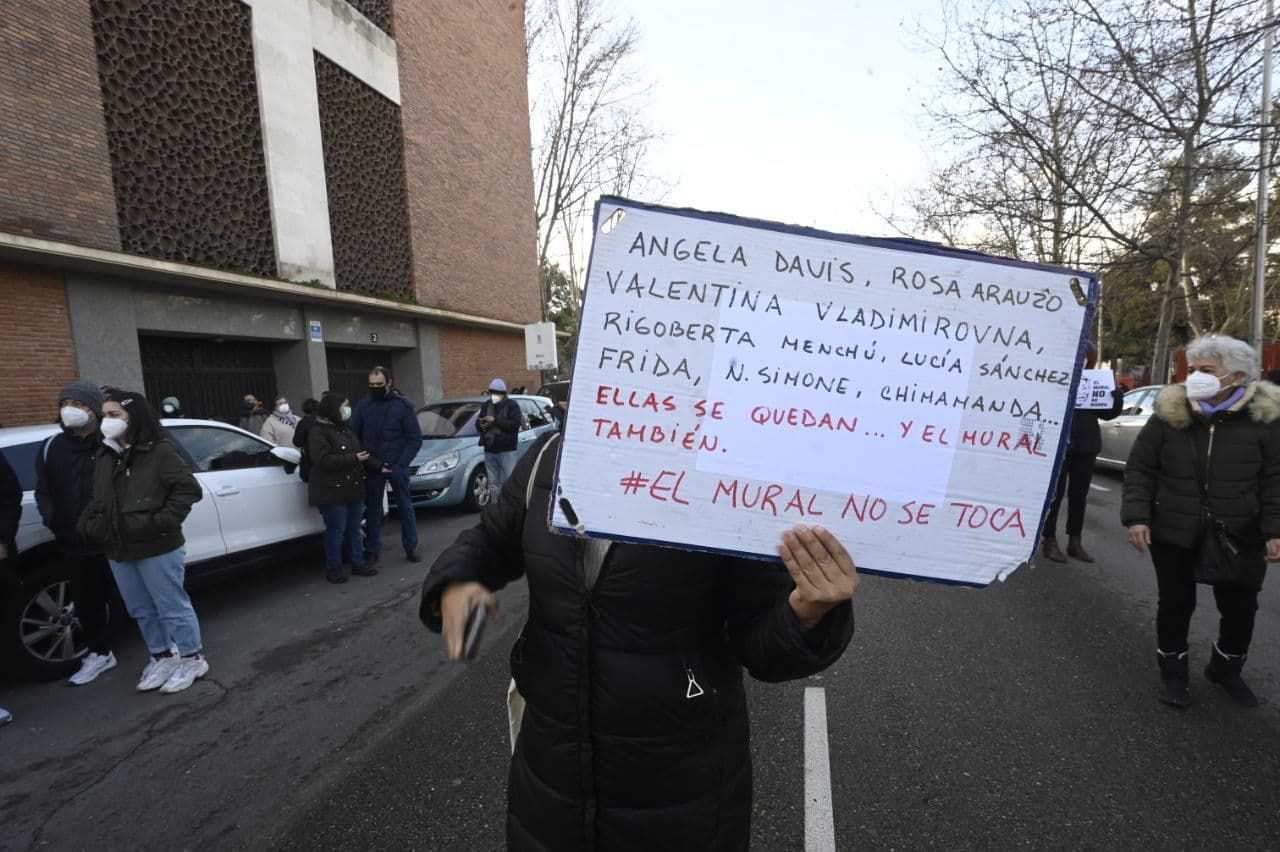 ANGELA DAVIS, ROSA ARAUZO
VALENTINA VLADIMIROVNA,
RIGOBERTA MENCHÚ, LUCÍA SÁNCHEZ
FRIDA, N. SIMONE, CHIMAMANDA...
ELLAS SE QUEDAN... Y EL MURAL
TAMBIÉN.
#EL MURAL NO SE TOCA
2
EL MURAL
NO
SE BORRA